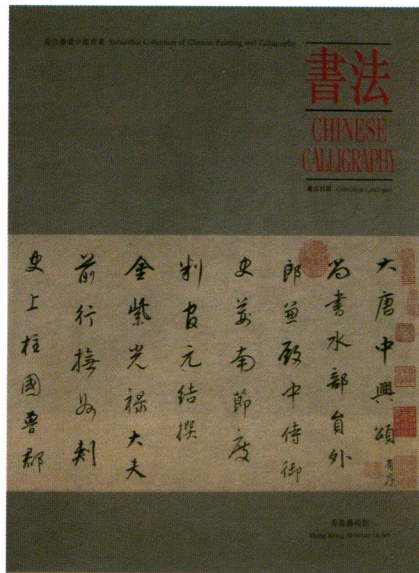 虛白齋藏中國書畫 Xubaizhai Collection of Chinese Painting and Calligraphy
書法
CHINESE
CALLIGRAPHY
Collection Catalogue
大唐中興頌 有序
尚書水部員外
郎兼殿中侍御
史荊南節度
判官元結撰
金紫光祿大夫
前行撫州刺
史上柱國魯郡
香港藝術館
Hong Kong Museum of Art